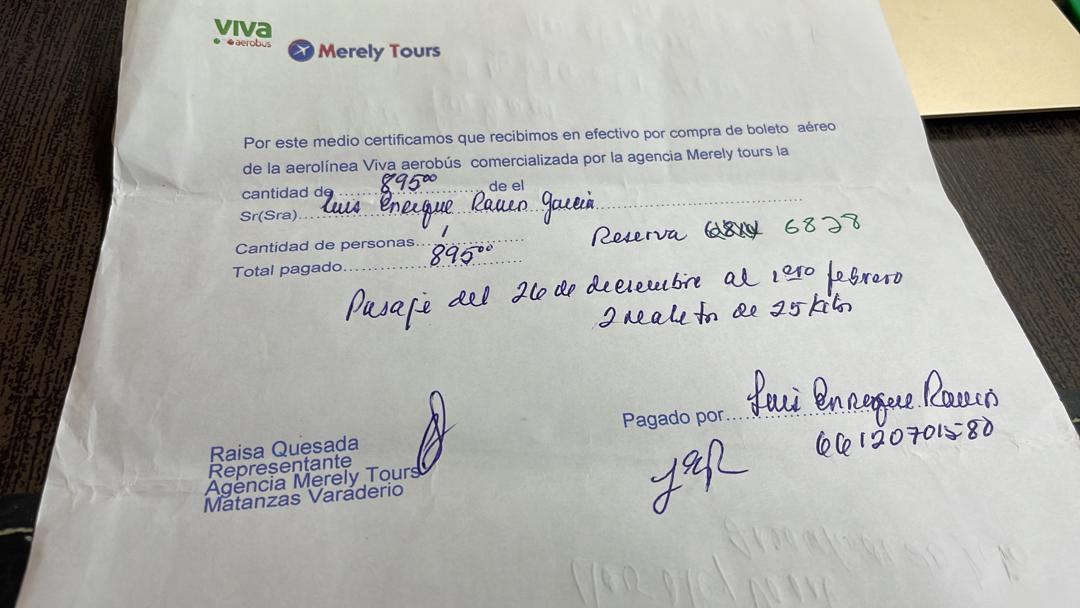 viva
aerobus
Merely Tours
Por este medio certificamos que recibimos en efectivo por compra de boleto aéreo
de la aerolínea Viva aerobús comercializada por la agencia Merely tours la
cantidad de 895⁰⁰ de el
Sr(Sra) Luis Enrique Ramos Garcia
Cantidad de personas 1
Reserva 6828
Total pagado 895⁰⁰
Pasaje del 26 de diciembre al 1ero febrero
2 maletas de 25 kilos
Pagado por Luis Enrique Ramos
66120701580
Raisa Quesada
Representante
Agencia Merely Tours
Matanzas Varaderio